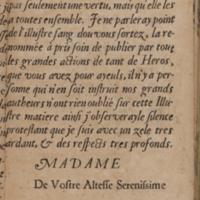 pas seulement une vertu, mais qu'elle les
a toutes ensemble. Je ne parleray point
de l'illustre sang dou vous sortez, la re-
nommée à pris soin de publier par tout
les grandes actions de tant de Heros,
que vous avez pour ayeuls, il n'y a per-
sonne qui n'en soit instruit nos grands
autheurs n'ont rien oublié sur cette Illu-
stre matiere ainsi j'observerayle silence
protestant que je suis avec un zele tres
ardant, & des respects tres profonds.
MADAME
De Vostre Altesse Serenissime